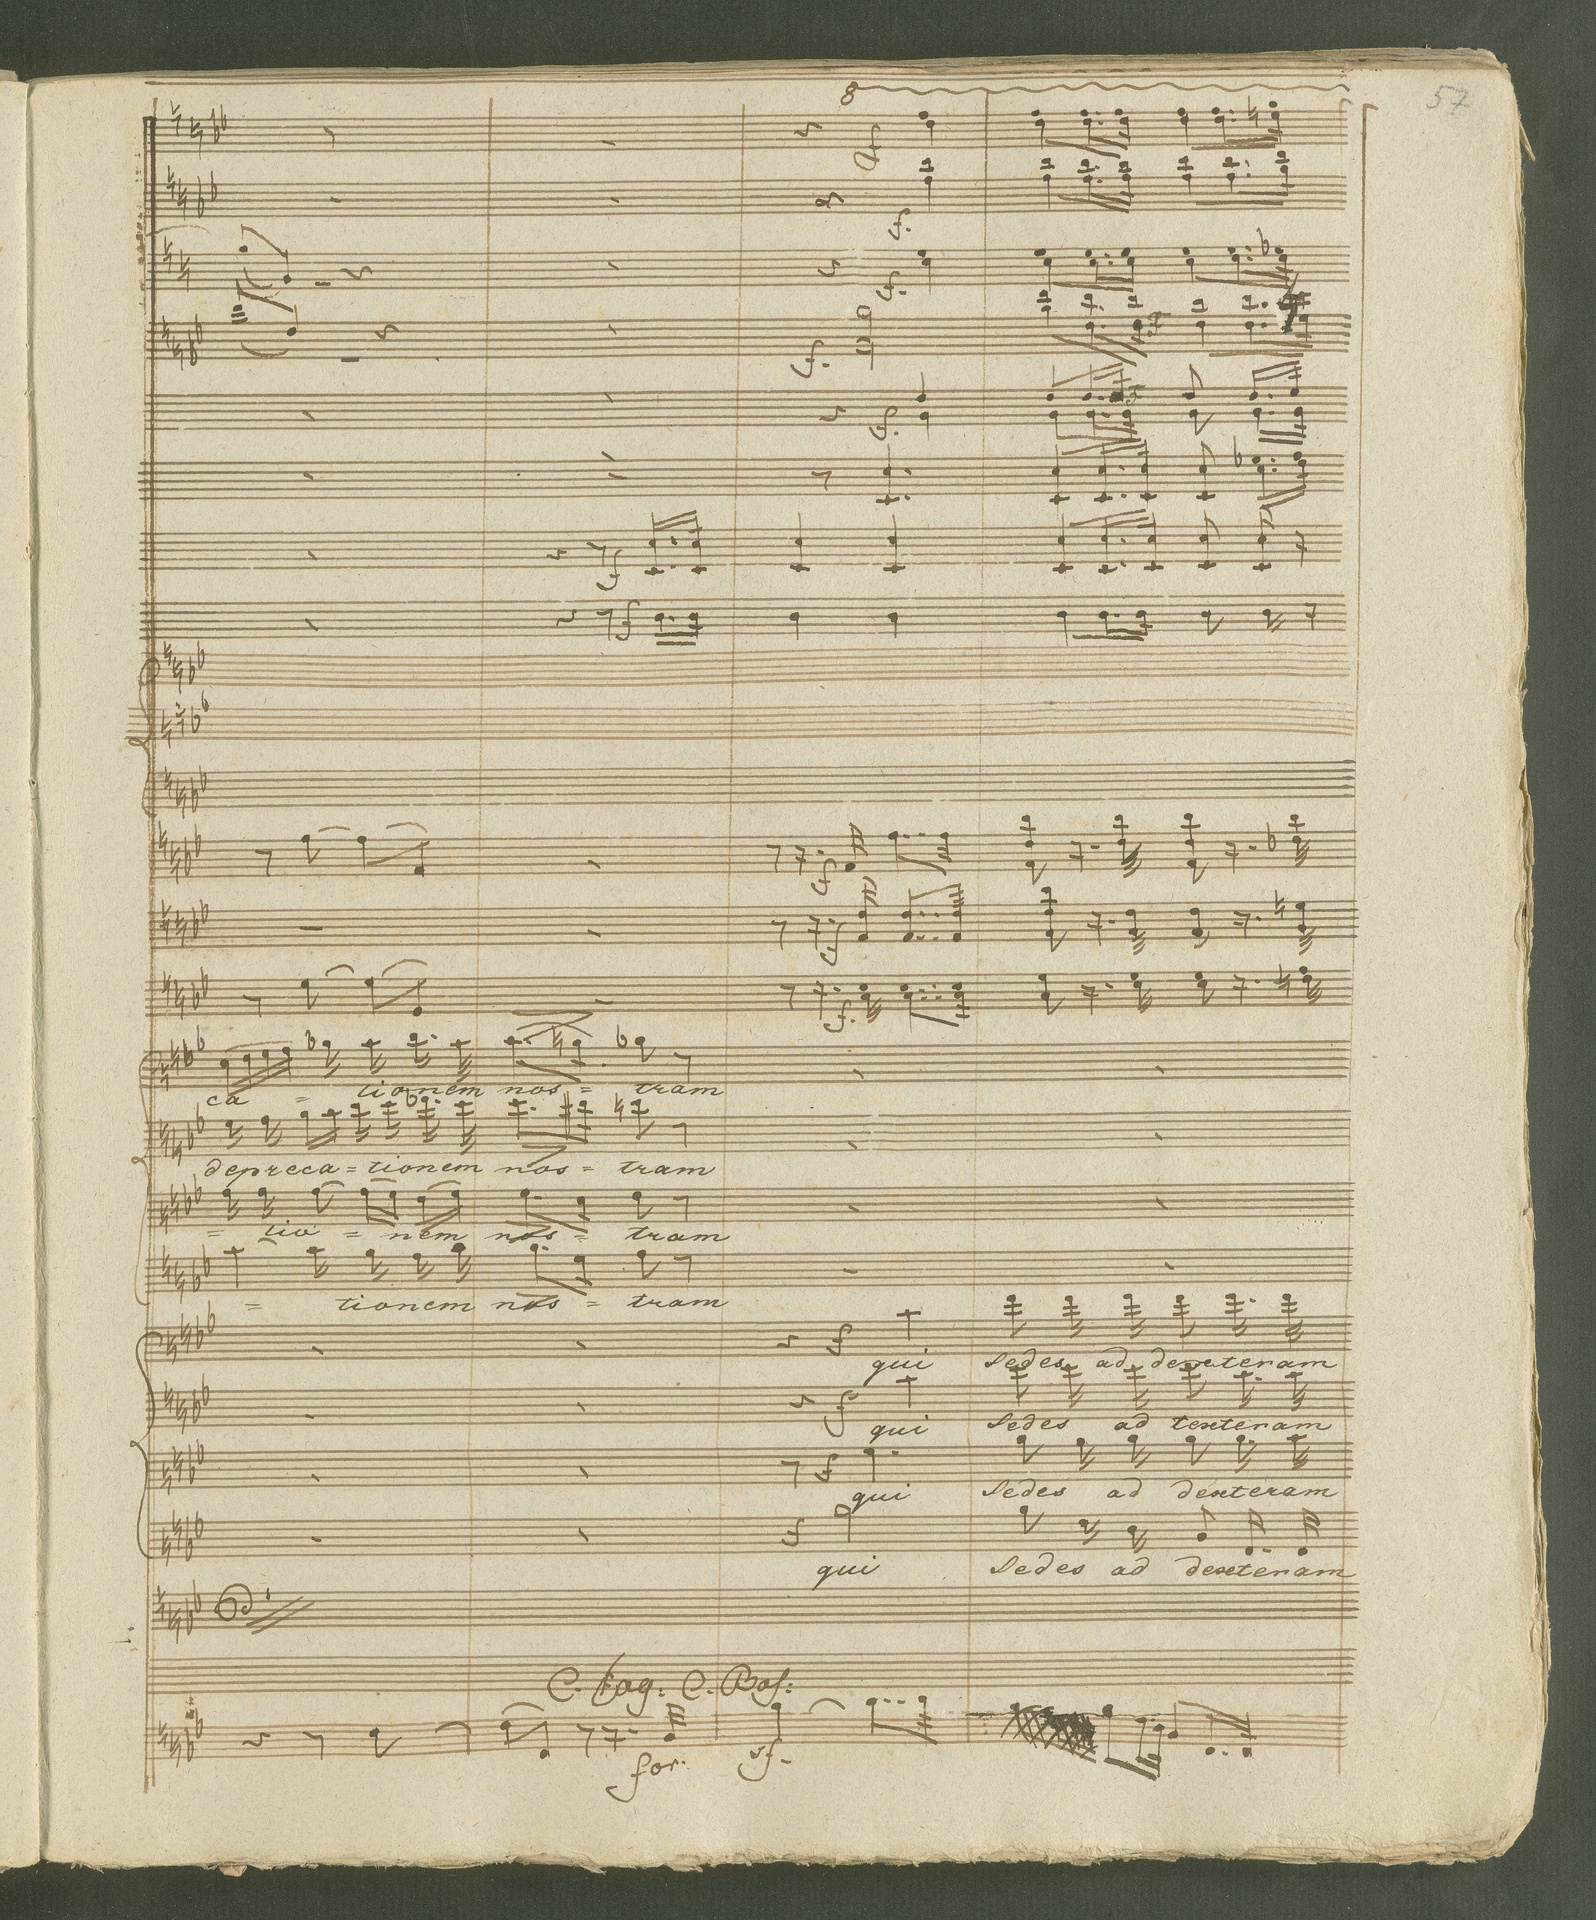 57
8
f
f.
f.
f.
f.
f
f
f.
f.
f.
ca = tionem nos = tram
depreca = tionem nos = tram
= tio = nem nos = tram
= tionem nos = tram
f
qui sedes ad dexteram
f
qui sedes ad texteram
f
qui sedes ad dexteram
f
qui sedes ad dexteram
C. Fag: C. Bas:
for. sf.